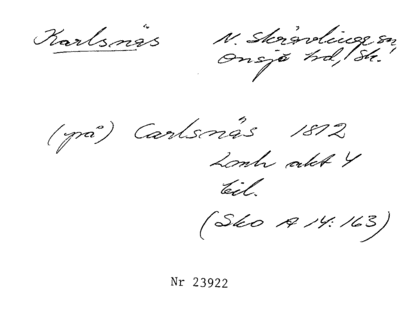 Karlsnäs N. Skrävlinge sn
Onsjö hd, Sk.
(på) Carlsnäs 1812
Lantm akt 4
til.
(Sko A 14:163)
Nr 23922